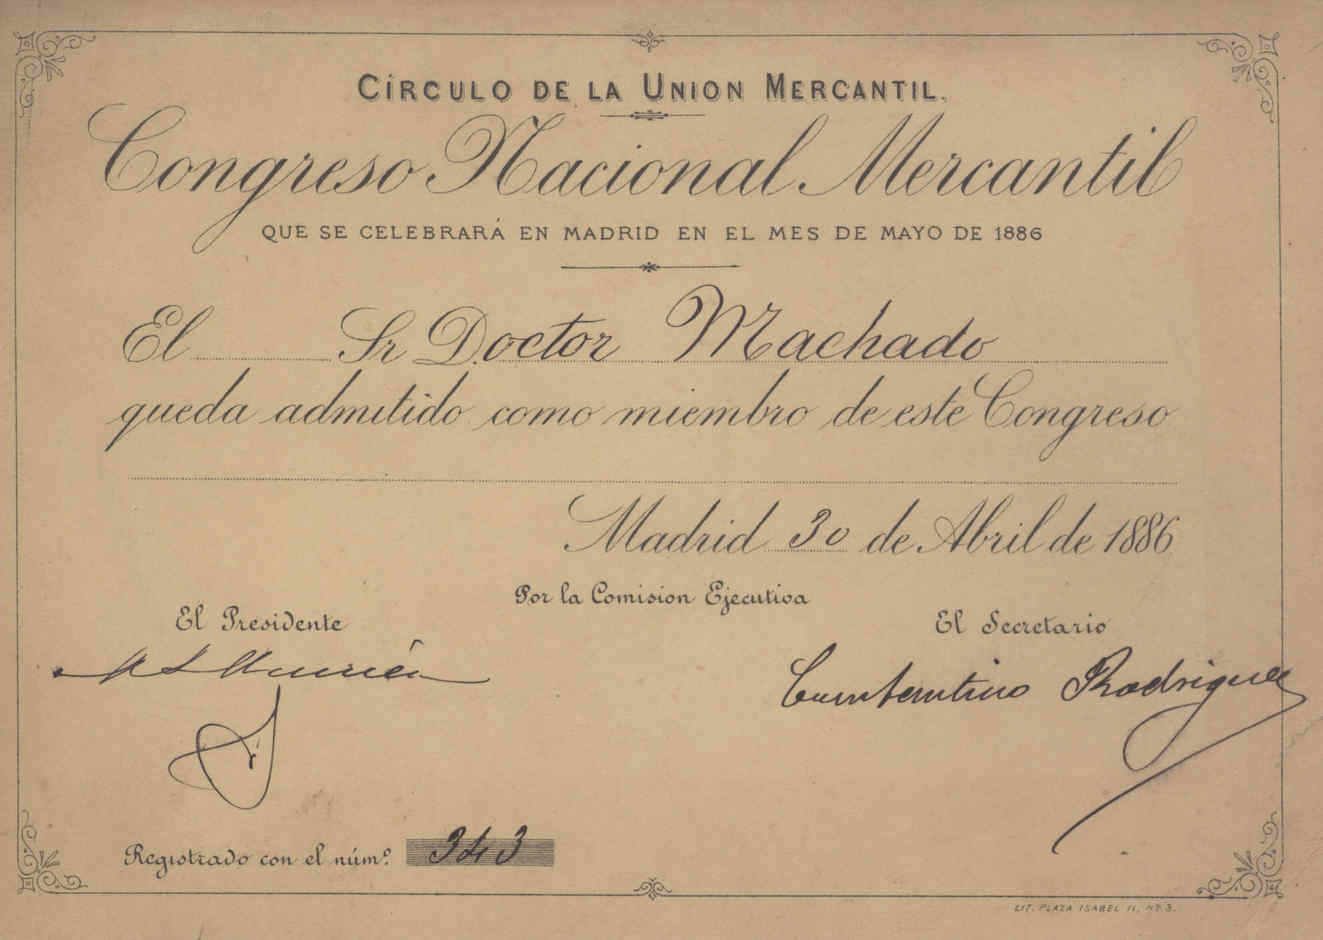 CÍRCULO DE LA UNION MERCANTIL.
Congreso Nacional Mercantil
QUE SE CELEBRARÁ EN MADRID EN EL MES DE MAYO DE 1886
El Sr. Doctor Machado
queda admitido como miembro de este Congreso
Madrid 30 de Abril de 1886
Por la Comision Ejecutiva
El Presidente
El Secretario
Rodriguez
Registrado con el núm.º 343
LIT. PLAZA ISABEL II, Nº 3.